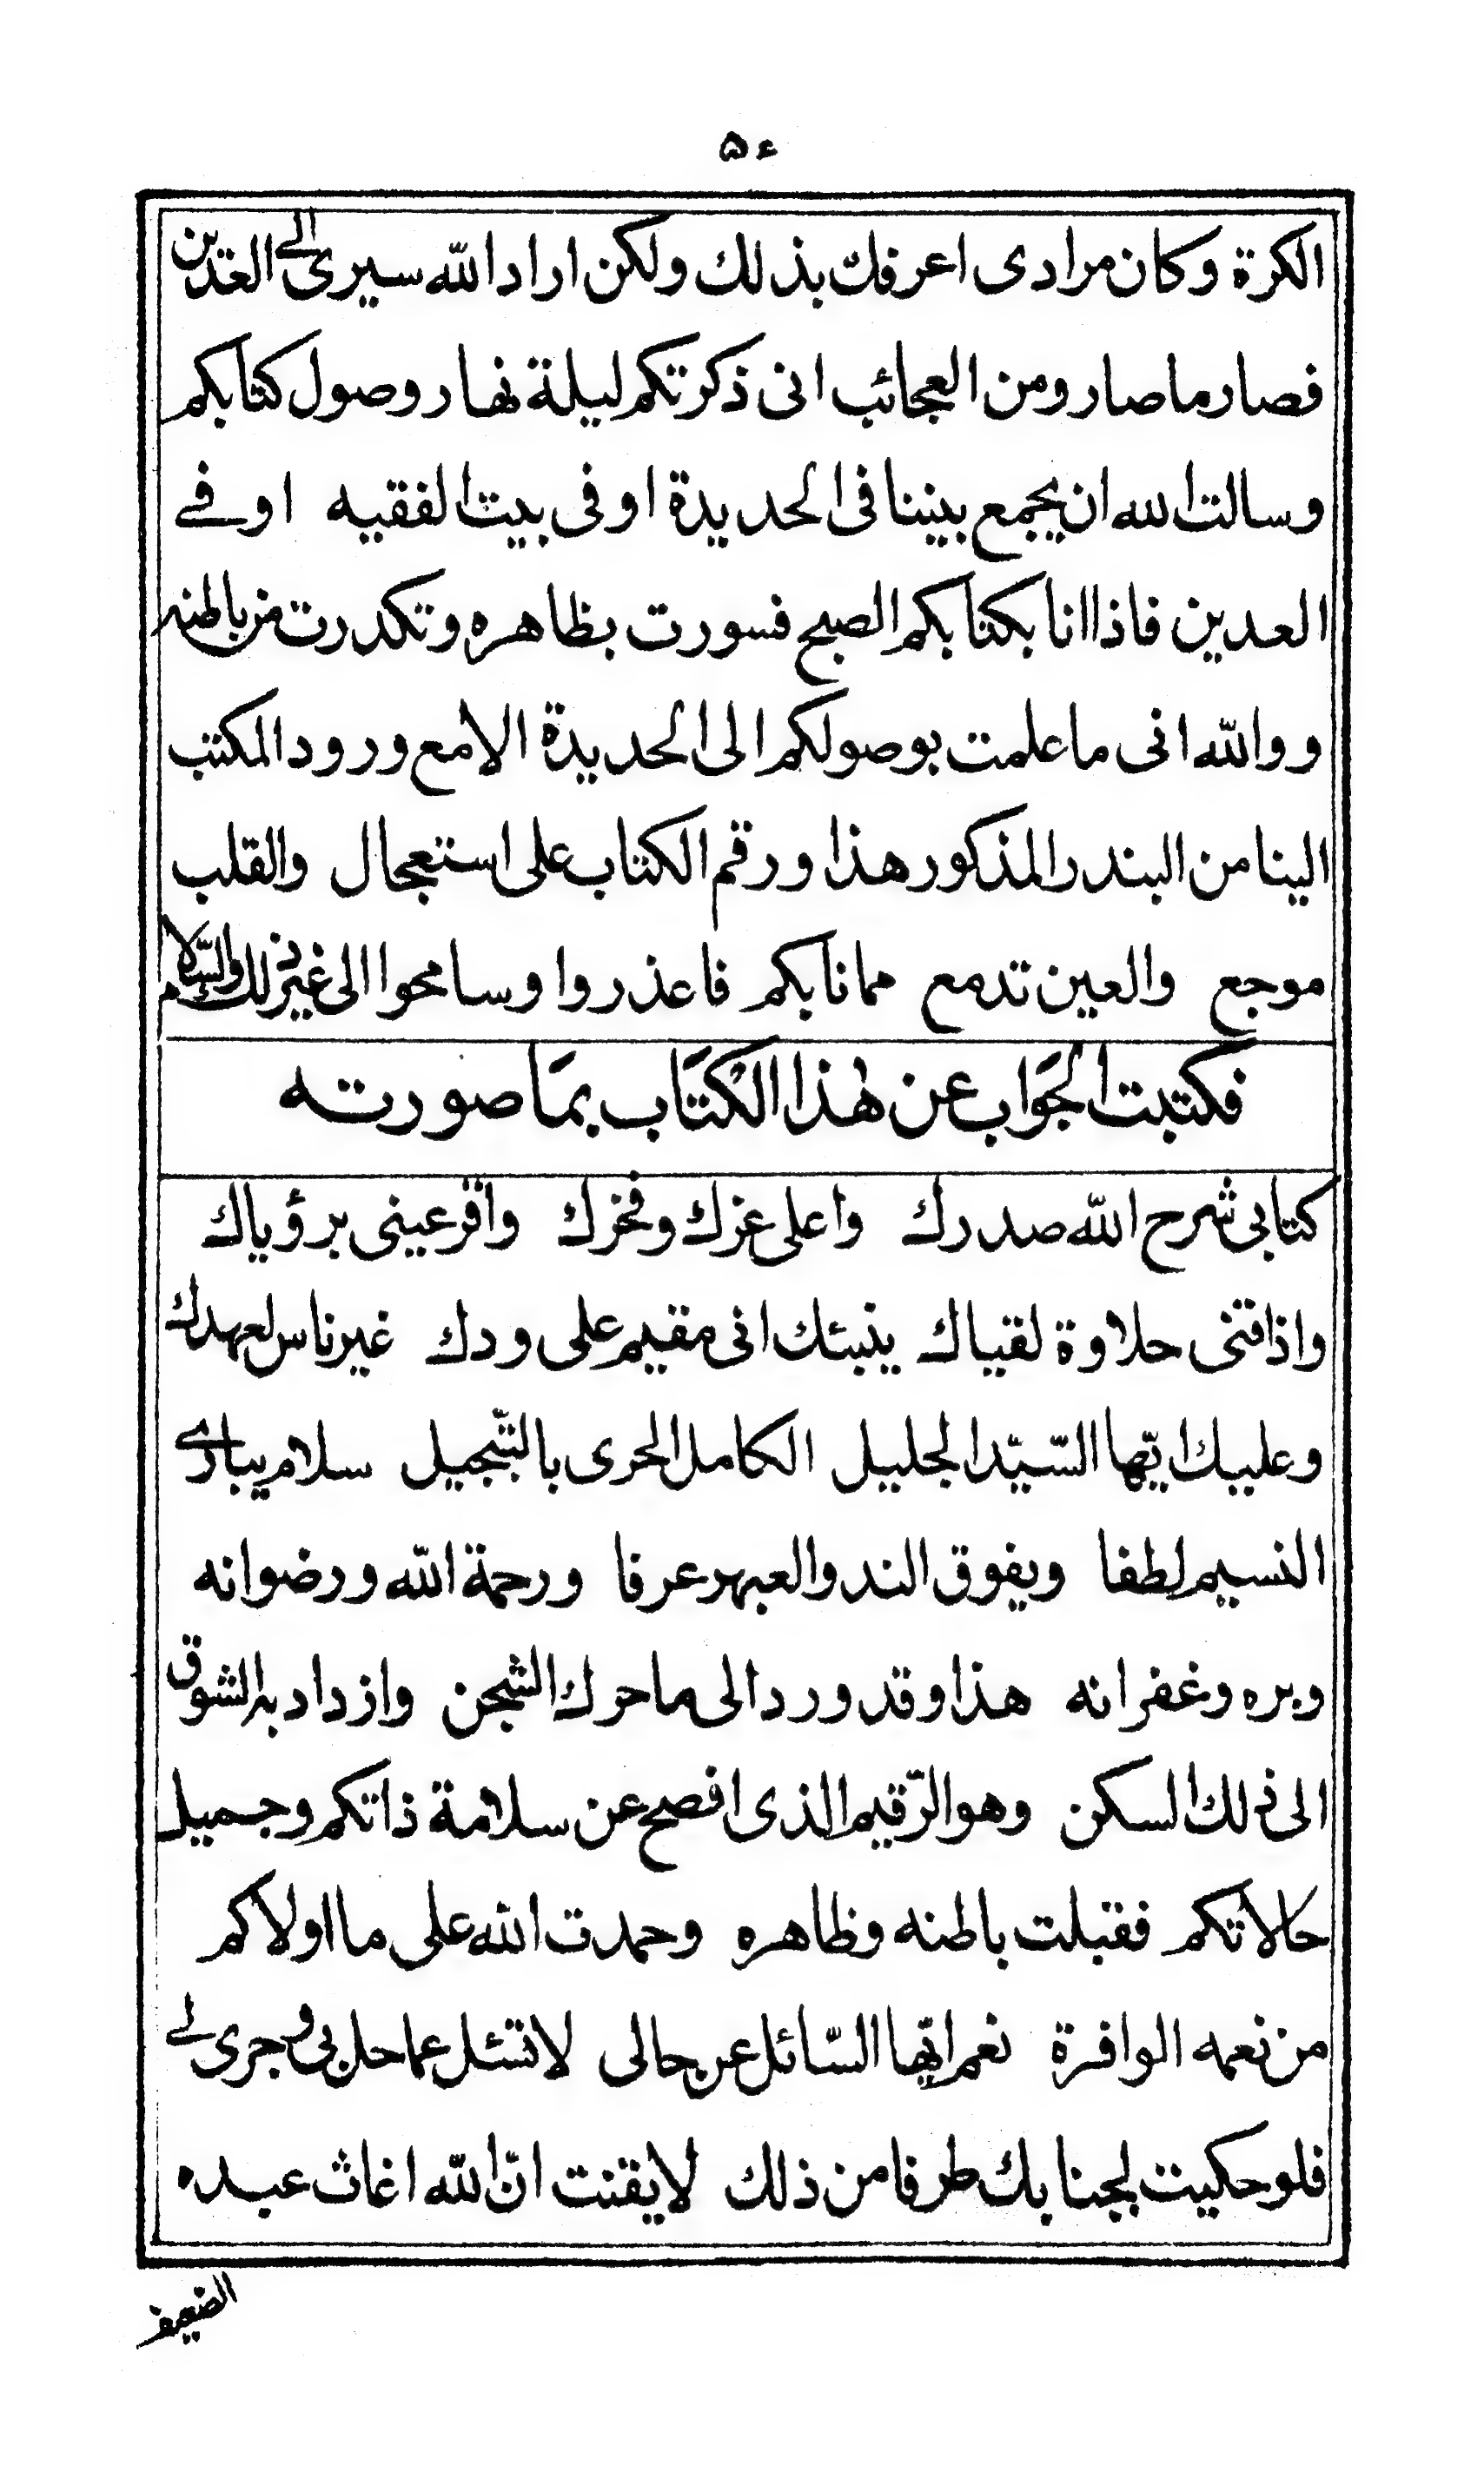 ۵۴
الكرة وكان مرادى اعرفك بذلك ولكن اراد الله سيرى الى العدين
فصار ما صار ومن العجائب انى ذكرتكم ليلة نهار وصول كتابكم
وسالت الله ان يجمع بيننا فى الحديدة او فى بيت الفقيه او فے
العدين فاذا انا بكتابكم الصبح فسورت بظاهره وتكدرت من باطنه
ووالله انى ما علمت بوصولكم الى الحديدة الا مع ورود المكتب
الينا من البندر المذكور هذا ورقم الكتاب على استعجال والقلب
موجع والعين تدمع مما نابكم فاعذروا وسامحوا الى غير ذلك والسّلام
فكتبت الجَوَاب عن هٰذا الكْتَاب بمَا صورته
كتابى شرح الله صدرك واعلى عزك وفخرك واقر عينى برؤياك
واذاقنى حلاوة لقياك ينبئك انى مقيم على ودك غير ناس لعهدك
وعليك ايّها السّيّد الجليل الكامل الحرى بالتّبجيل سلام يبارے
النسيم لطفا ويفوق الند والعبهر عرفا ورحمة الله ورضوانه
وبره وغفرانه هذا وقد ورد الى ما حرك الشجن وازداد به الشوق
الى ذلك السكن وهو الرّقيم الذى افصح عن سلامة ذاتكم وجميل
حالاتكم فقبلت باطنه وظاهره وحمدت الله على ما اولاكم
من نعمه الوافرة نعم ايّها السّائل عن حالى لا تسئل عما حل بى وجرى لے
فلو حكيت لجنابك طرفا من ذلك لايقنت انّ الله اغاث عبده
الضعيف